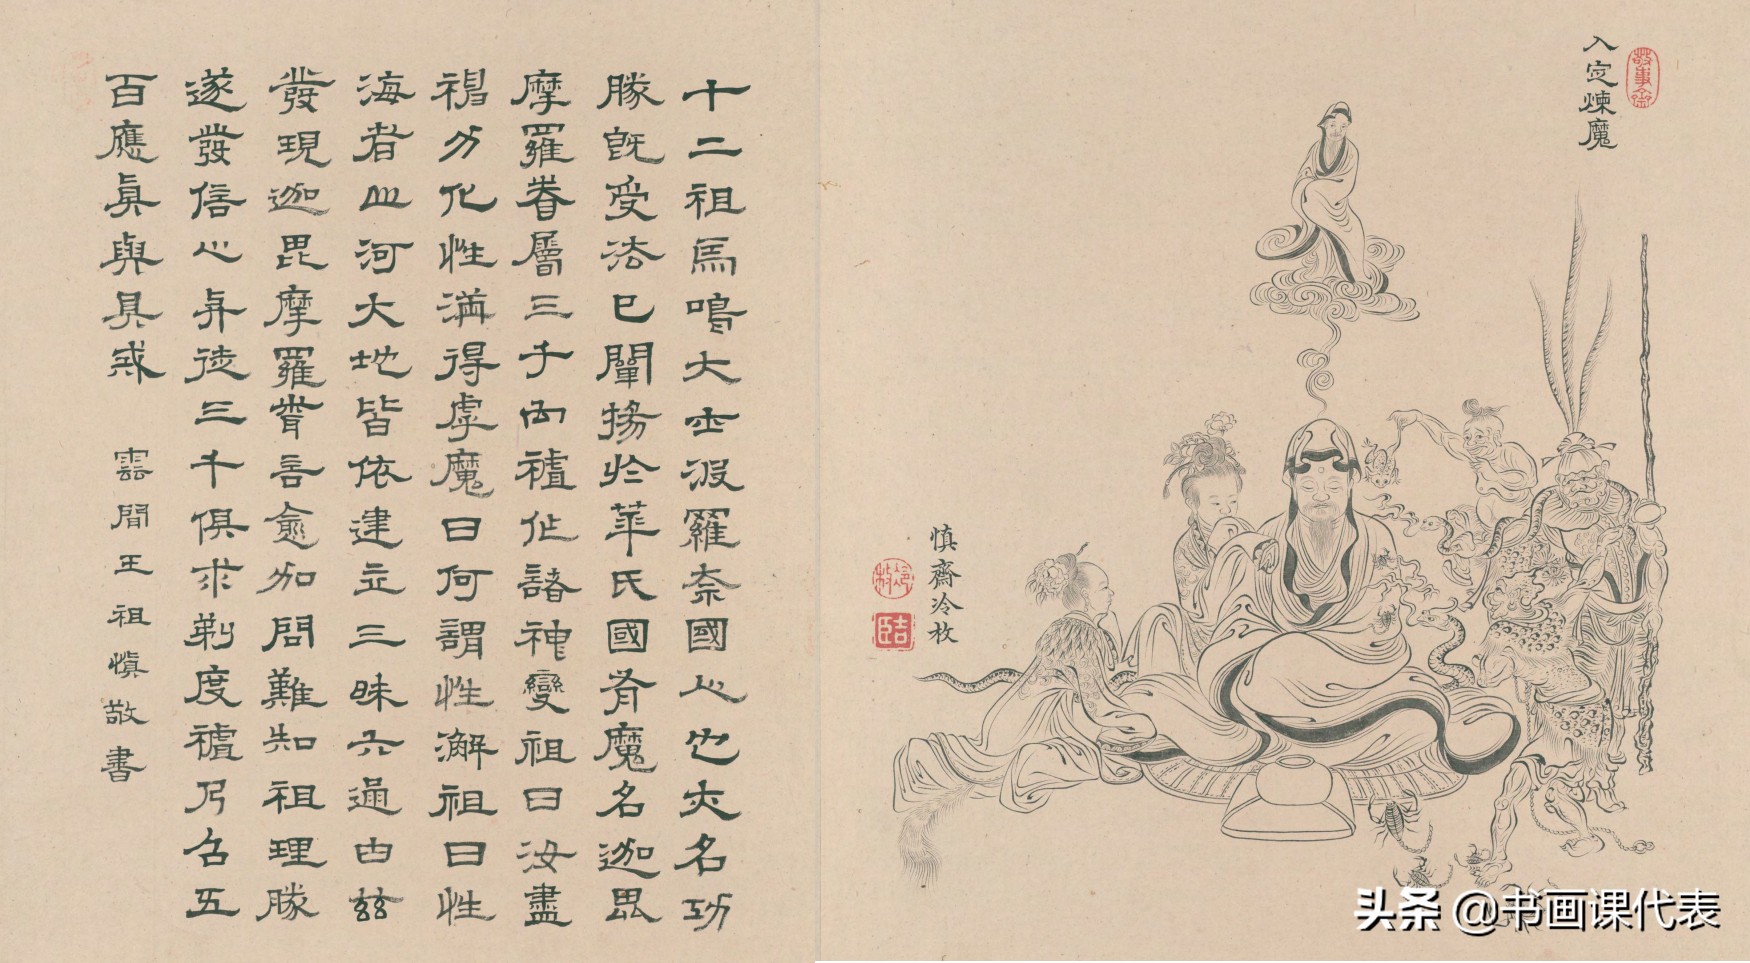 入定煉魔
慎齋冷枚
十二祖馬鳴大士波羅奈國人也亦名功
勝既受法已闡揚於華氏國有魔名迦毘
摩羅眷屬三千向祖作諸神變祖曰汝盡
力化性澥得虖魔曰何謂性澥祖曰性
海者山河大地皆依建立三昧六通由茲
發現迦毘摩羅聞言愈加問難知祖理勝
遂發信心并徒三千俱求剃度祖乃召五
百應真與具戒
雲間王祖慎敬書
头条 @书画课代表